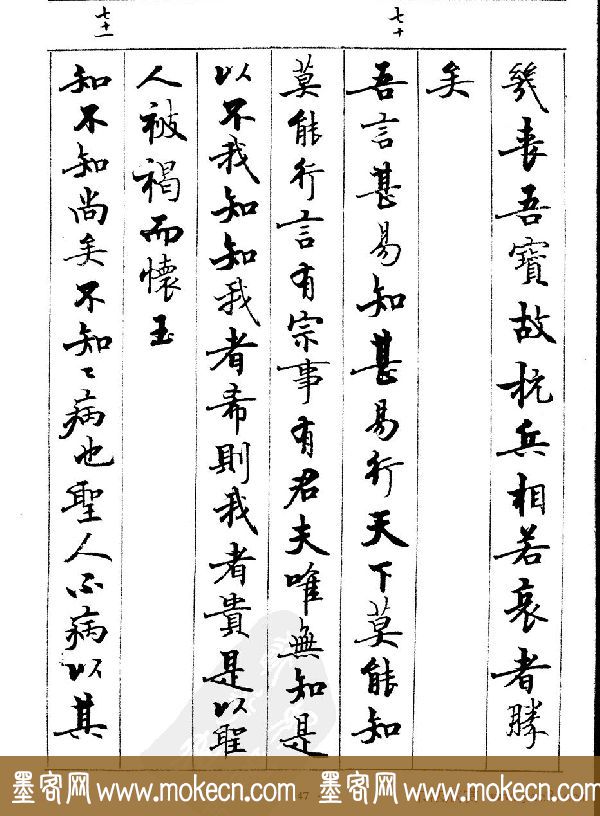 幾喪吾寶故抗兵相若哀者勝
矣
七十
吾言甚易知甚易行天下莫能知
莫能行言有宗事有君夫唯無知是
以不我知知我者希則我者貴是以聖
人被褐而懷玉
七十一
知不知尚矣不知〻病也聖人不病以其
墨客网 www.mokecn.com 47 墨客网 www.mokecn.com